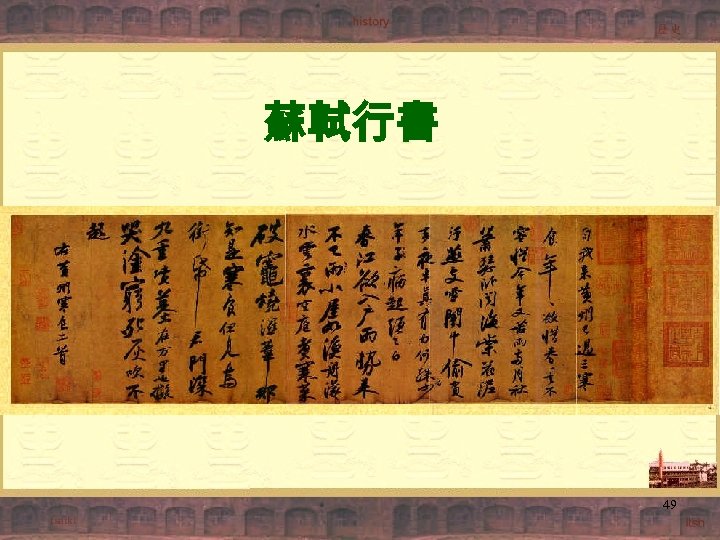 history
歷史
蘇軾行書
自我來黃州已過三寒
食年々欲惜春々去不
容惜今年又苦雨兩月秋
蕭瑟臥聞海棠花泥
汙燕支雪闇中偷負
去夜半真有力何殊少
年子病起須已白
春江欲入戶雨勢來
不已雨小屋如漁舟濛々
水雲裏空庖煮寒菜
破竈燒濕葦那
知是寒食但見烏
銜帋君門深
九重墳墓在万里也擬
哭塗窮死灰吹不
起
右黃州寒食二首
49